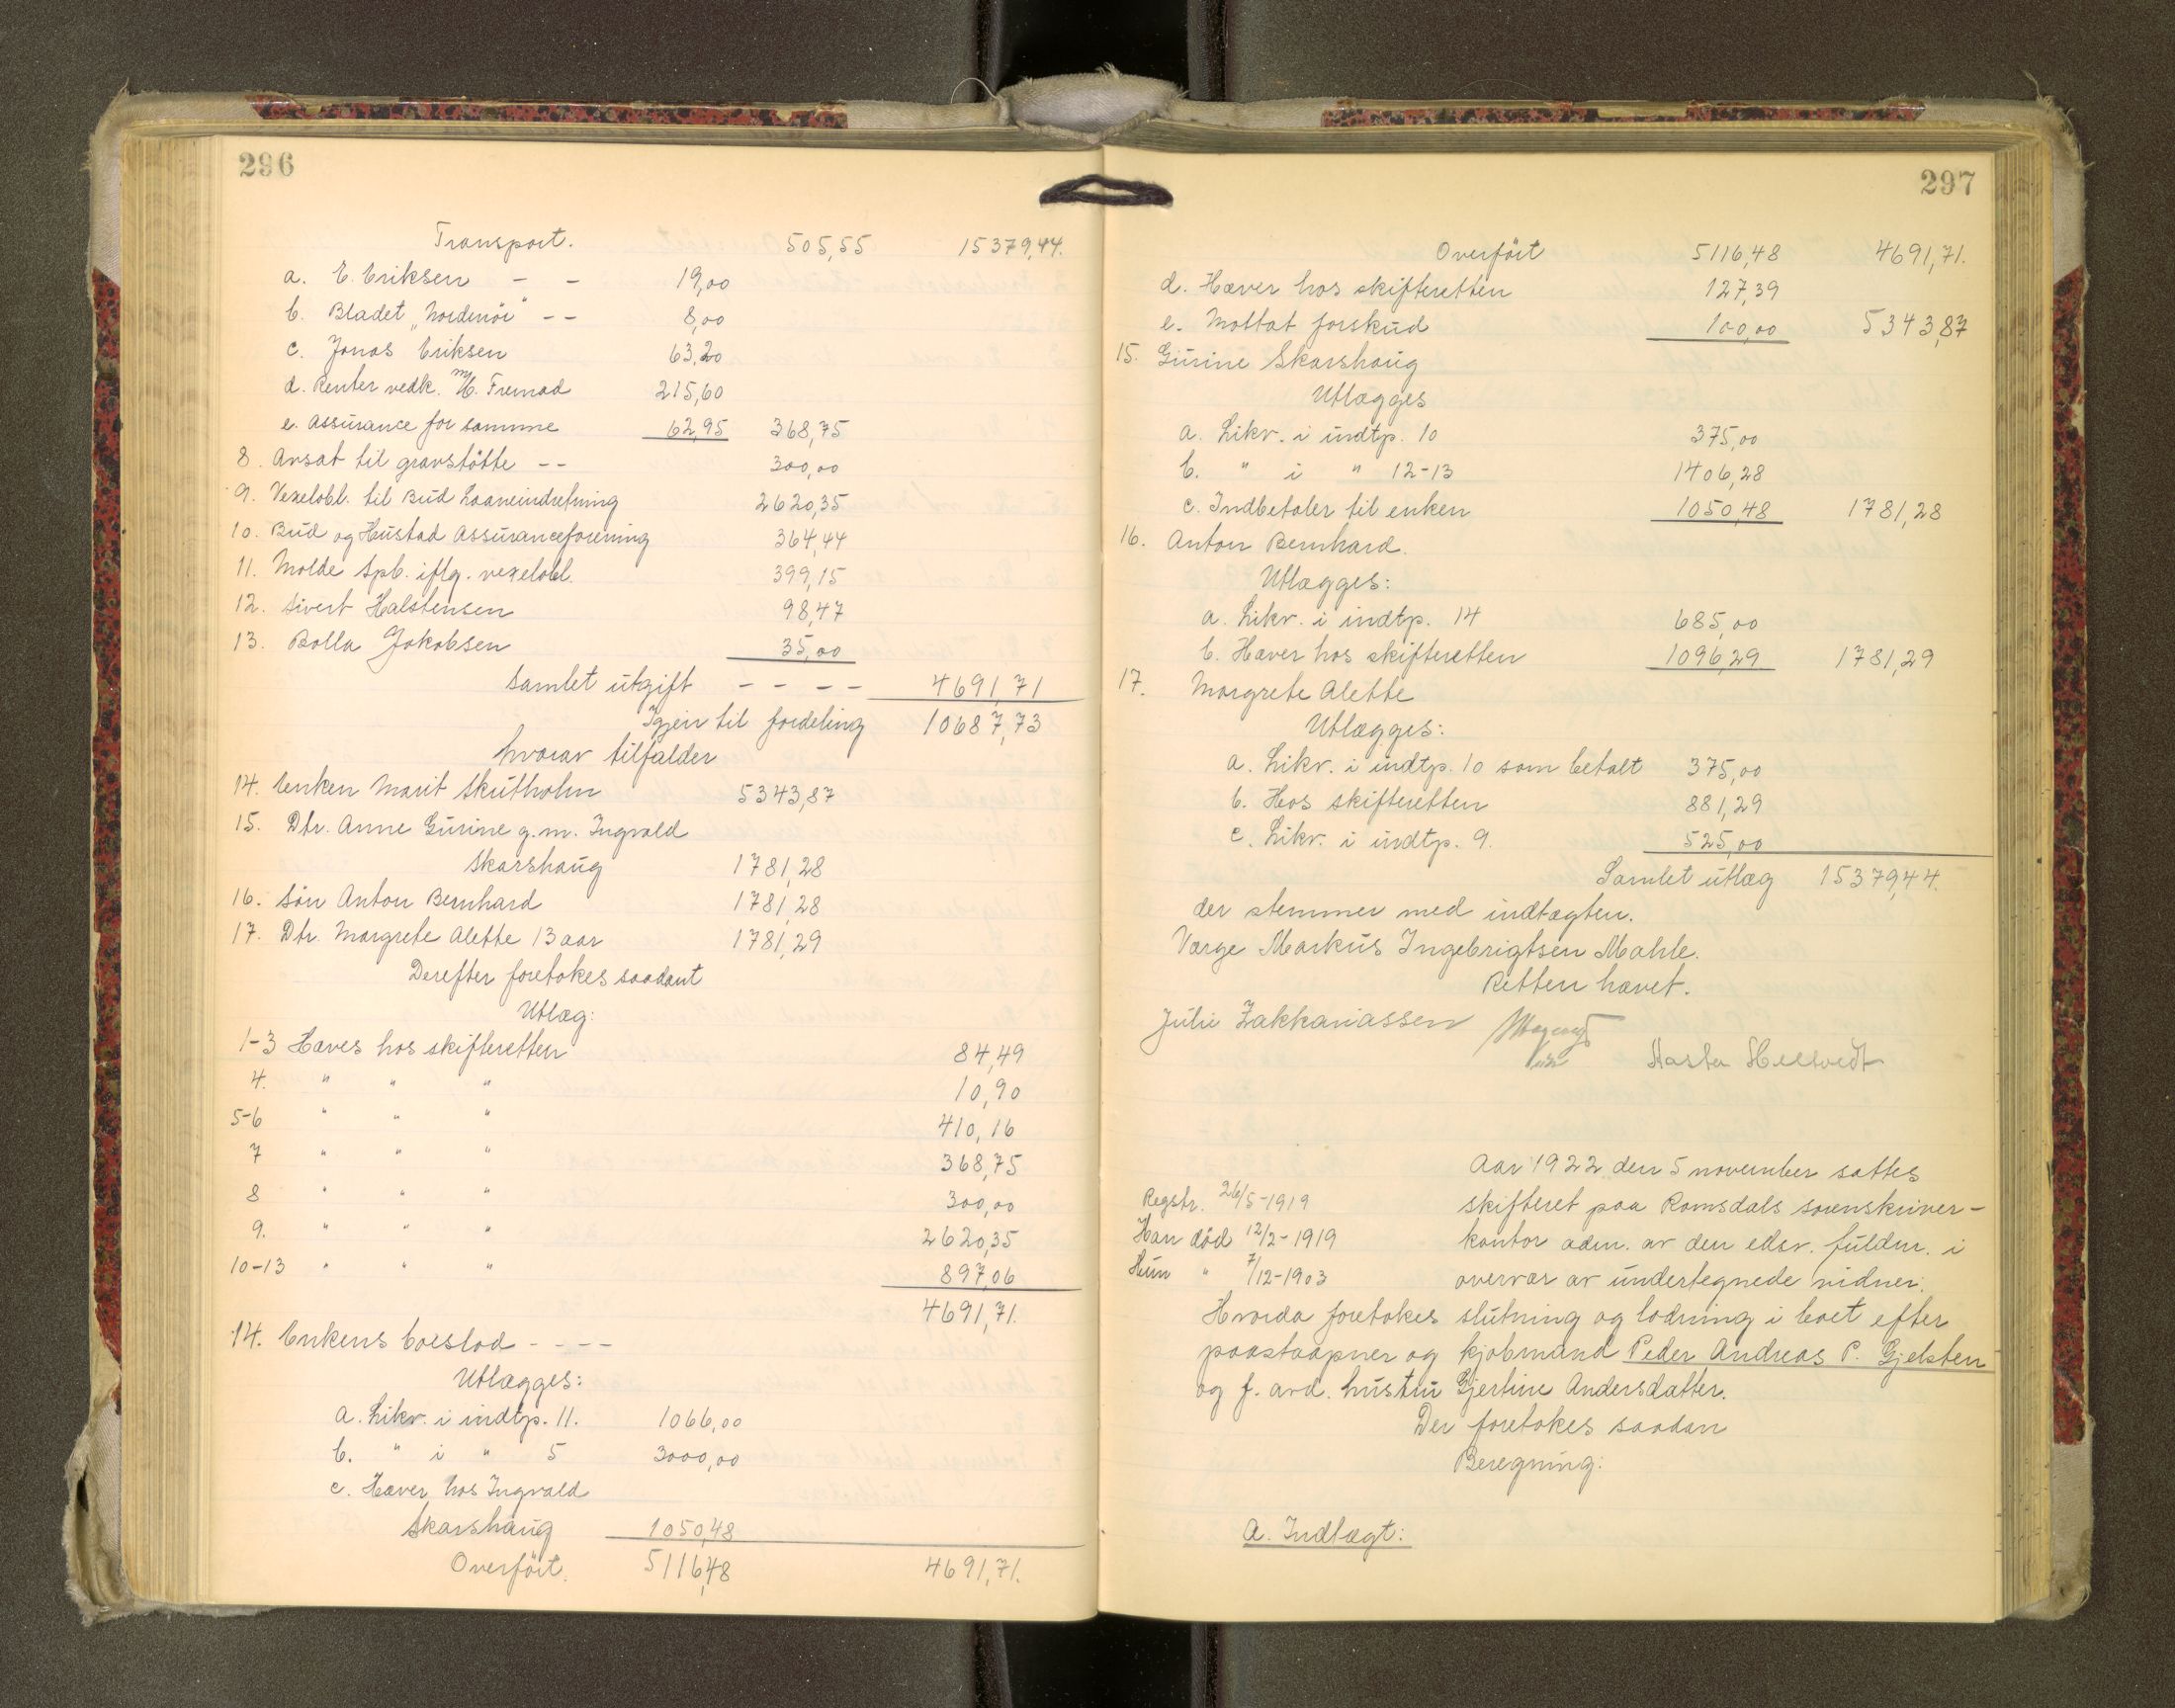 296
Transport. 505,55 15379,44.
a. E. Eriksen - - 19,00
b. Bladet „Nordmör" - - 8,00
c. Jonas Eriksen 63,20
d. Renter vedk. M/K. Fremad 215,60
e. Assurance for samme 62,95 368,75
8. Avsat til gravstötte - - 300,00
9. Vexelobl. til Bud Laaneindretning 2620,35
10. Bud og Hustad Assuranceforening 364,44
11. Molde Spb. iflg. vexelobl. 399,15
12. Sivert Halstensen 98,47
13. Bolla Jakobsen 35,00
Samlet utgift - - - - 4691,71
Igjen til fordeling 10687,73
hvorav tilfalder
14. Enken Marit Skutholm 5343,87
15. Dtr. Anne Gurine g.m. Ingvald
Skarshaug 1781,28
16. Sön Anton Bernhard 1781,28
17. Dtr. Margrete Alette 13 aar 1781,29
Derefter foretokes saadant
Utlæg:
1-3 Hæves hos skifteretten 84,49
4. " " " 10,90
5-6 " " " 410,16
7 " " " 368,75
8 " " " 300,00
9. " " " 2620,35
10-13 " " " 897,06
4691,71.
14. Enkens boeslod - - - -
Utlægges:
a. Likv. i indtp. 11. 1066,00
b. " i " 5 3000,00
c. Hæver hos Ingvald
Skarshaug 1050,48
Overfört. 5116,48 4691,71.
297
Overfört 5116,48 4691,71.
d. Hæver hos skifteretten 127,39
e. Mottat forskud 100,00 5343,87
15. Gurine Skarshaug
Utlægges
a. Likv. i indtp. 10 375,00
b. " i " 12-13 1406,28
c. Indbetaler til enken 1050,48 1781,28
16. Anton Bernhard.
Utlægges:
a. Likv. i indtp. 14 685,00
b. Hæver hos skifteretten 1096,29 1781,29
17. Margrete Alette
Utlægges:
a. Likv. i indtp. 10 som betalt 375,00
b. Hos skifteretten 881,29
c. Likv. i indtp. 9. 525,00
Samlet utlæg 15379,44.
der stemmer med indtægten.
Værge Markus Ingebrigtsen Mahle.
Retten hævet.
Juli Zakkariassen
Aar 1922 den 5 november sattes
Regstr. 26/5-1919 skifteret paa Romsdals sorenskriver-
Han död 12/2-1919 kontor adm. av den edsv. fuldm. i
Hun " 7/12-1903 overvær av undertegnede vidner.
Hvorda foretokes slutning og lodning i boet efter
poståapner og kjøbmand Peder Andreas P. Gjelsten
og f. avd. hustru Gjertine Andersdatter.
Der foretokes saadan
Beregning:
A. Indtægt: